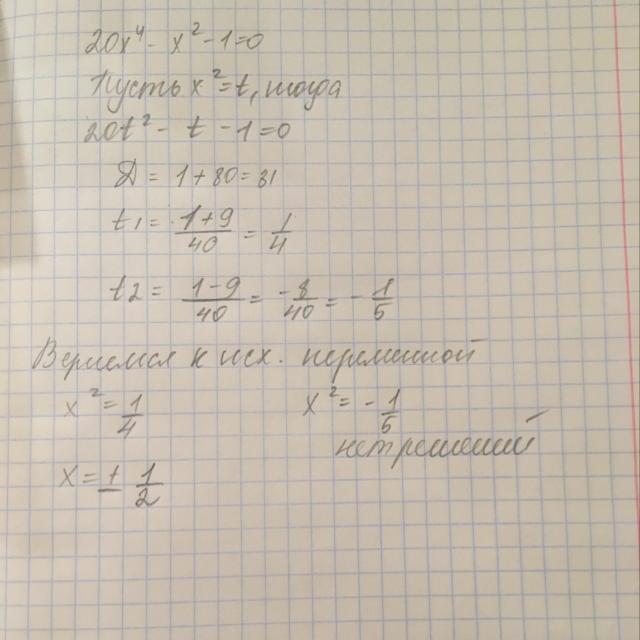 20x⁴ - x² - 1 = 0
Пусть x² = t, тогда
20t² - t - 1 = 0
Д = 1 + 80 = 81
t1 = (1+9)/40 = 1/4
t2 = (1-9)/40 = -8/40 = -1/5
Вернемся к исх. переменной
x² = 1/4    x² = -1/5
нет решений
x = ± 1/2